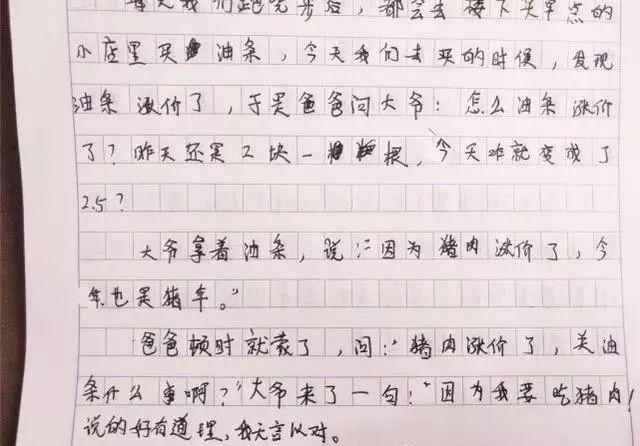 每天我们跑完步后，都会去楼下买早点的
小店里买油条，今天我们去买的时候，发现
油条涨价了，于是爸爸问大爷：怎么油条涨价
了？昨天还是2块一根，今天咋就变成了
2.5？
大爷拿着油条，说：“因为猪肉涨价了，今
年也是猪年。”
爸爸顿时就蒙了，问：“猪肉涨价了，关油
条什么事啊？”大爷来了一句：“因为我要吃猪肉！
说的好有道理，我无言以对。